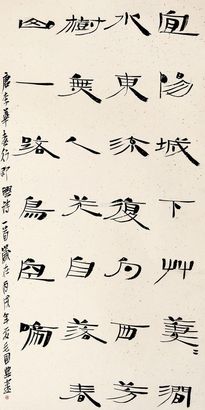 宜陽城下艸萋〻澗
水東流復向西芳
樹無人花自落春
山一路鳥空啼
唐李華春行即興詩一首歲在丙戌年夏毛國典書